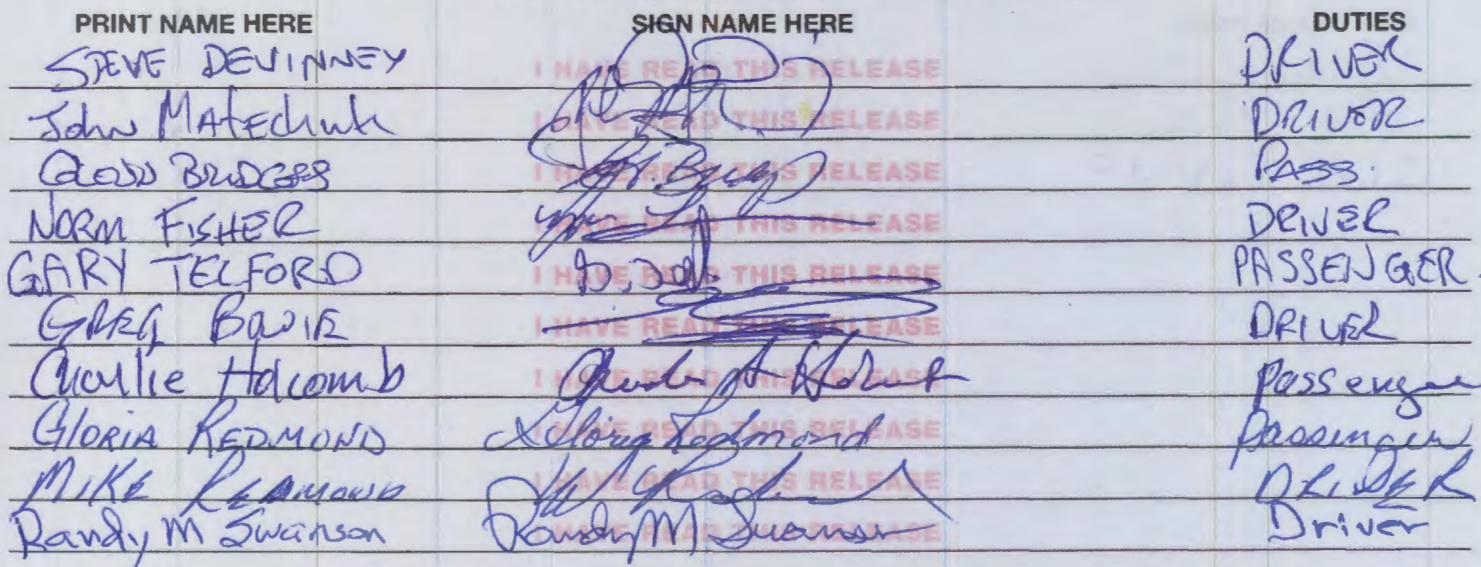 PRINT NAME HERE SIGN NAME HERE DUTIES
STEVE DEVINNEY I HAVE READ THIS RELEASE DRIVER
John Matechuk I HAVE READ THIS RELEASE DRIVER
BRIDGES I HAVE READ THIS RELEASE PASS.
NORM FISHER I HAVE READ THIS RELEASE DRIVER
GARY TELFORD I HAVE READ THIS RELEASE PASSENGER
GREG BOWIE I HAVE READ THIS RELEASE DRIVER
Charlie Holcomb I HAVE READ THIS RELEASE Passenger
GLORIA REDMOND Gloria Redmond I HAVE READ THIS RELEASE Passenger
MIKE REDMOND I HAVE READ THIS RELEASE DRIVER
Randy M Swanson Randy M Swanson I HAVE READ THIS RELEASE Driver